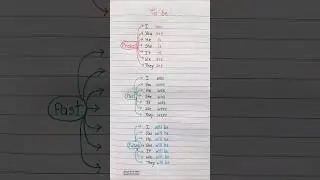 To be
Present
I am
You are
He is
She is
It is
We are
They are
Past
Past
I was
You were
He was
She was
It was
We were
They were
Future
I will be
You will be
He will be
She will be
It will be
We will be
They will be